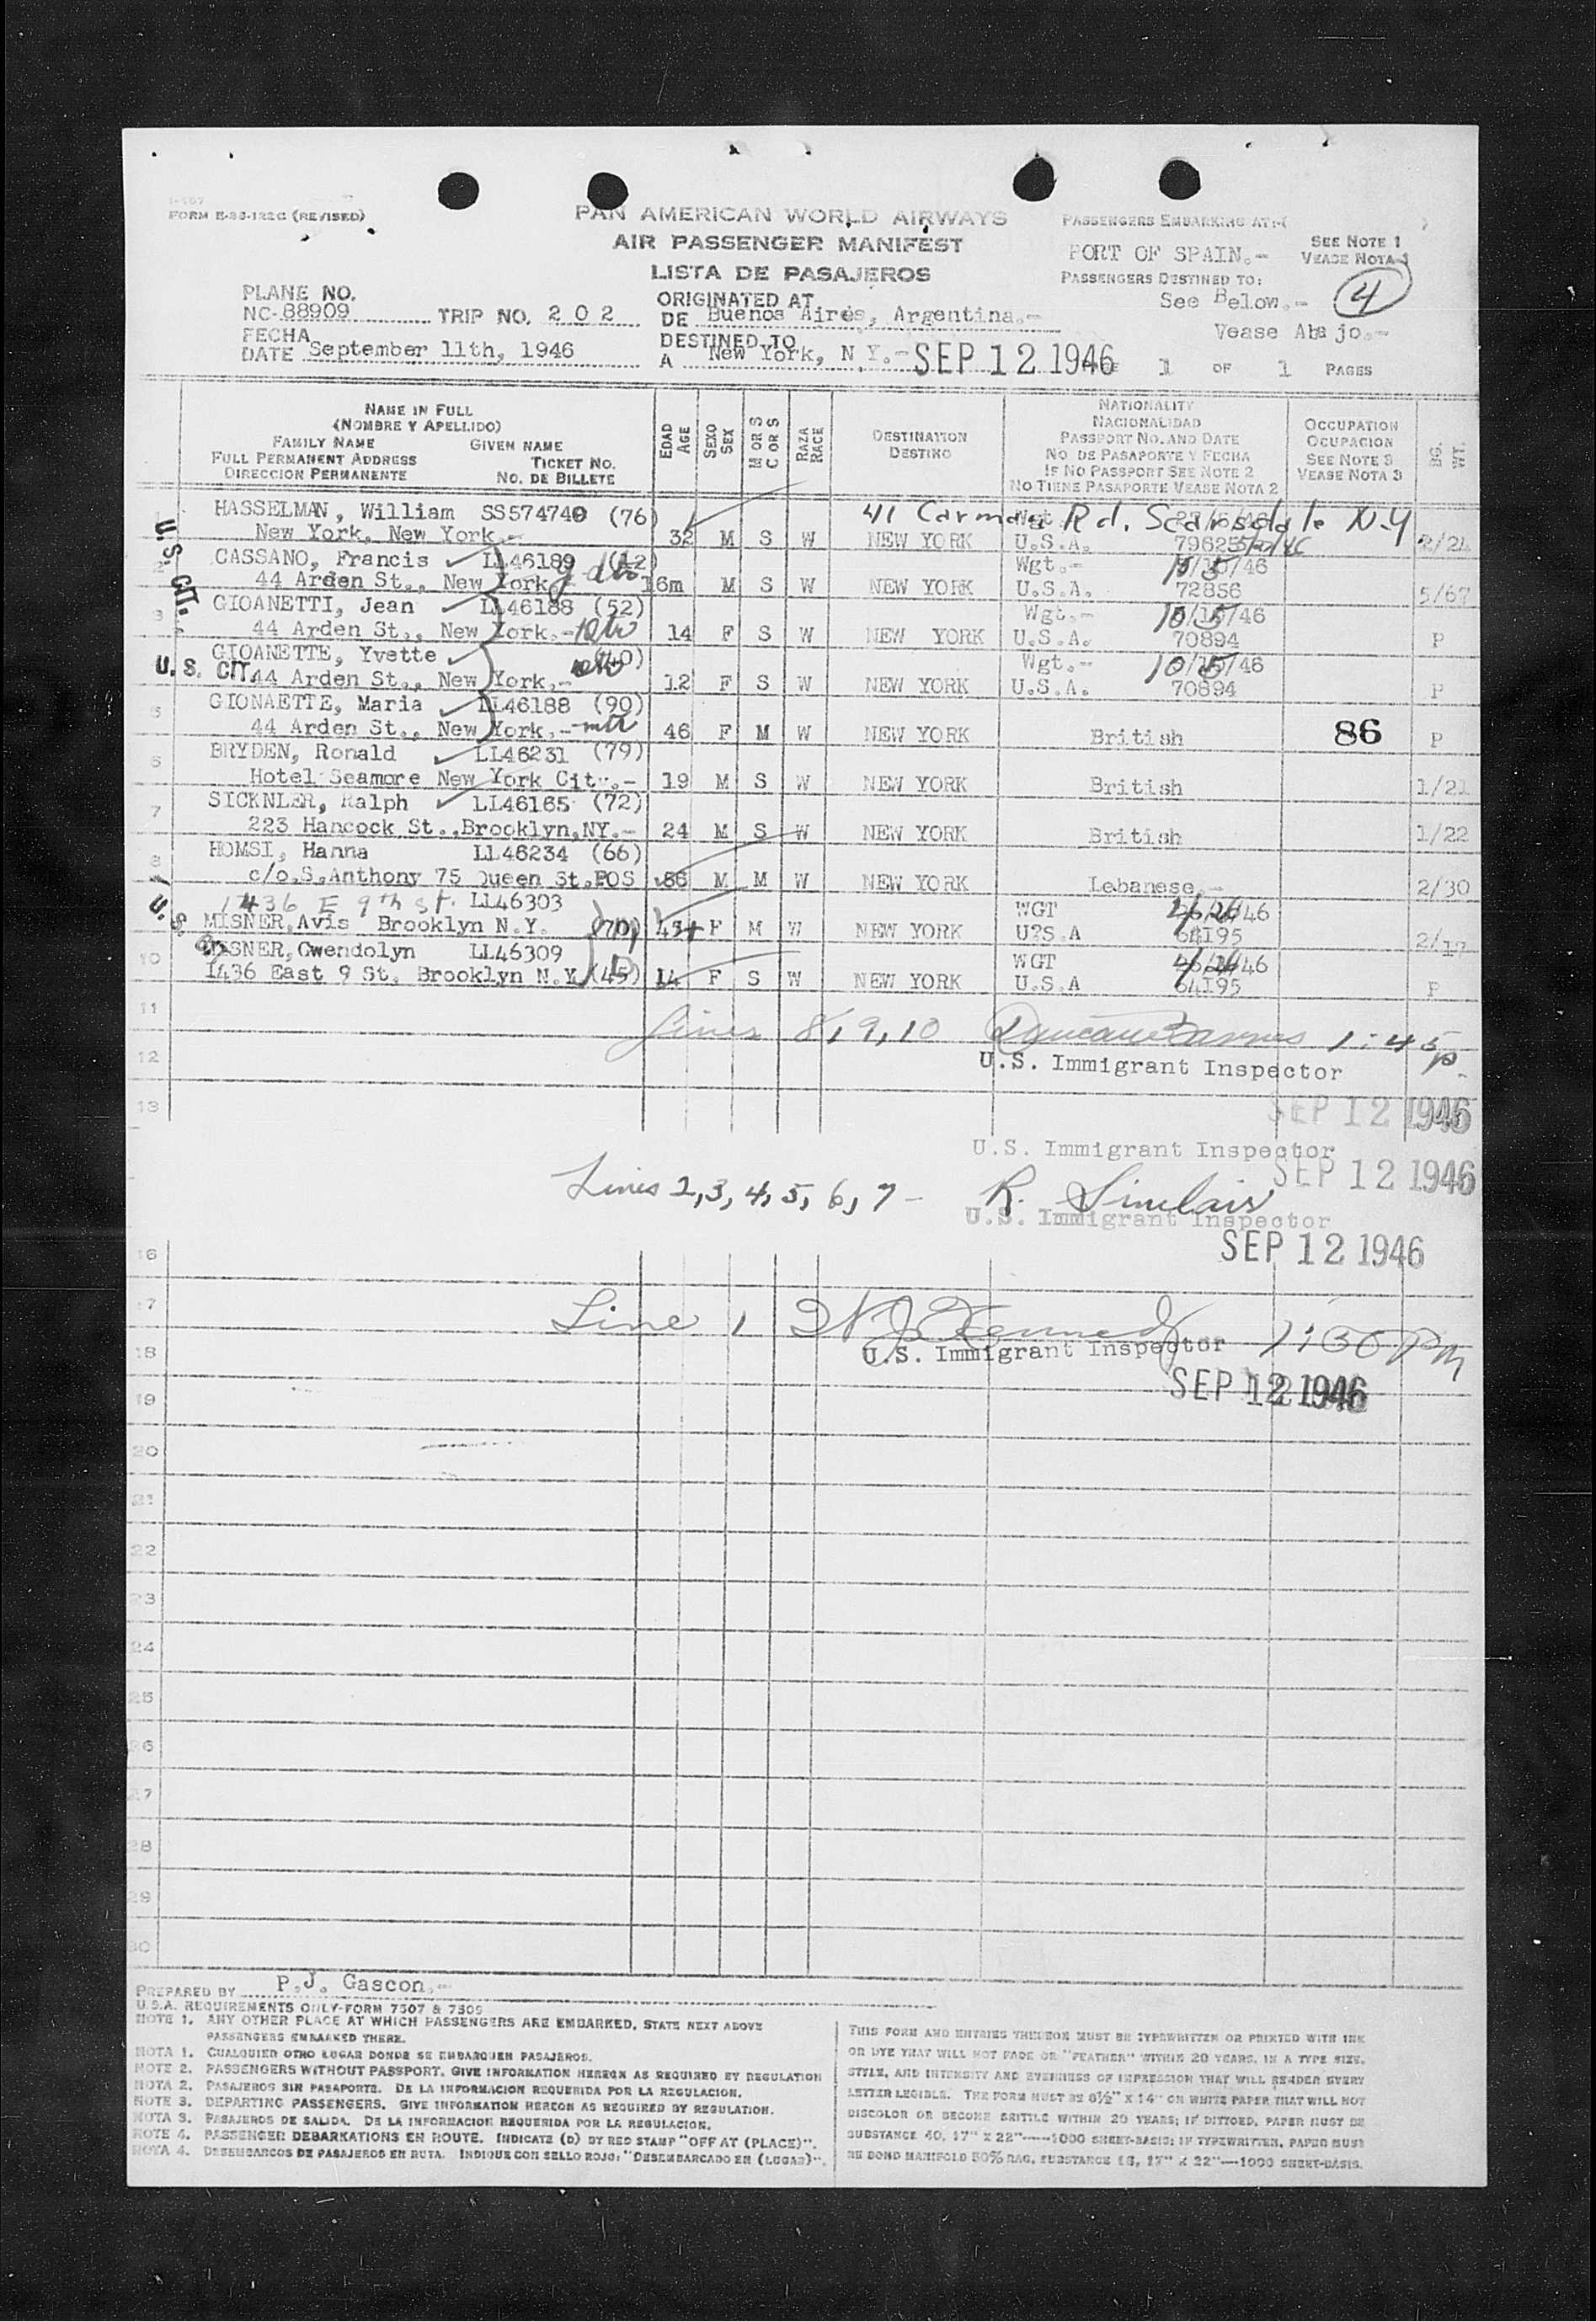 FORM E-36-122C (REVISED)
PAN AMERICAN WORLD AIRWAYS
AIR PASSENGER MANIFEST
LISTA DE PASAJEROS
PASSENGERS EMBARKING AT:-(
PORT OF SPAIN.-
SEE NOTE 1
VEASE NOTA 1
PASSENGERS DESTINED TO:
See Below.-
4
Vease Abajo.-
PLANE NO.
NC-88909 TRIP NO. 2 0 2
FECHA
DATE September 11th, 1946
ORIGINATED AT
DE Buenos Aires, Argentina.-
DESTINED TO
A New York, N Y.-
SEP 12 1946
1 OF 1 PAGES
NAME IN FULL
(NOMBRE Y APELLIDO)
FAMILY NAME GIVEN NAME
FULL PERMANENT ADDRESS TICKET NO.
DIRECCION PERMANENTE NO. DE BILLETE
EDAD AGE
SEXO SEX
M OR S C OR S
RAZA RACE
DESTINATION
DESTINO
NATIONALITY
NACIONALIDAD
PASSPORT NO. AND DATE
NO DE PASAPORTE Y FECHA
IF NO PASSPORT SEE NOTE 2
NO TIENE PASAPORTE VEASE NOTA 2
OCCUPATION
OCUPACION
SEE NOTE 3
VEASE NOTA 3
BG. WT.
HASSELMAN, William SS574740 (76) 41 Rd. Scarsdale N.Y
New York, New York.- 32 M S W NEW YORK U.S.A. 79625 2/24
U.S. CIT.
2 CASSANO, Francis LL46189 (12) Wgt.- /46
44 Arden St., New York 16m M S W NEW YORK U.S.A. 72856 5/67
3 GIOANETTI, Jean LL46188 (52) Wgt.- 10/15/46
44 Arden St., New York.- 14 F S W NEW YORK U.S.A. 70894 P
GIOANETTE, Yvette (40) Wgt.- 10/15/46
U.S. CIT.
44 Arden St., New York.- 12 F S W NEW YORK U.S.A. 70894 P
5 GIONAETTE, Maria LL46188 (90)
44 Arden St., New York.- 46 F M W NEW YORK British 86 P
6 BRYDEN, Ronald LL46231 (79)
Hotel Seamore New York City.- 19 M S W NEW YORK British 1/21
7 SICKNLER, Ralph LL46165 (72)
223 Hancock St.,Brooklyn,NY.- 24 M S W NEW YORK British 1/22
8 HOMSI, Hanna LL46234 (66)
c/o.S.Anthony 75 Queen St.POS 56 M M W NEW YORK Lebanese.- 2/30
1436 E 9th St. LL46303 WGT 4/26/46
MISNER,Avis Brooklyn N.Y. (70) F M W NEW YORK U?S.A 64195 2/17
10 MISNER,Gwendolyn LL46309 WGT 4/26/46
1436 East 9 St. Brooklyn N.Y. (45) 14 F S W NEW YORK U.S.A 64195 P
11
Lines 8, 9, 10 Duncan Barnes 1:45 p.
12
U.S. Immigrant Inspector
13
SEP 12 1946
U.S. Immigrant Inspector
SEP 12 1946
Lines 2,3, 4, 5, 6, 7 - R. Sinclair
U.S. Immigrant Inspector
SEP 12 1946
16
17
Line 1 Kennedy 1:30 PM
U.S. Immigrant Inspector
18
SEP 12 1946
19
20
21
22
23
24
25
26
27
28
29
30
PREPARED BY P.J. Gascon.-
U.S.A. REQUIREMENTS ONLY-FORM 7507 & 7509
NOTE 1. ANY OTHER PLACE AT WHICH PASSENGERS ARE EMBARKED, STATE NEXT ABOVE
PASSENGERS EMBARKED THERE.
NOTA 1. CUALQUIER OTRO LUGAR DONDE SE EMBARQUEN PASAJEROS.
NOTE 2. PASSENGERS WITHOUT PASSPORT, GIVE INFORMATION HEREON AS REQUIRED BY REGULATION
NOTA 2. PASAJEROS SIN PASAPORTE. DE LA INFORMACION REQUERIDA POR LA REGULACION.
NOTE 3. DEPARTING PASSENGERS. GIVE INFORMATION HEREON AS REQUIRED BY REGULATION.
NOTA 3. PASAJEROS DE SALIDA. DE LA INFORMACION REQUERIDA POR LA REGULACION.
NOTE 4. PASSENGER DEBARKATIONS EN ROUTE. INDICATE (D) BY RED STAMP "OFF AT (PLACE)".
NOTA 4. DESEMBARCOS DE PASAJEROS EN RUTA. INDIQUE CON SELLO ROJO: "DESEMBARCADO EN (LUGAR)".
THIS FORM AND ENTRIES THEREON MUST BE TYPEWRITTEN OR PRINTED WITH INK
OR DYE THAT WILL NOT FADE OR "FEATHER" WITHIN 20 YEARS, IN A TYPE SIZE,
STYLE, AND INTENSITY AND EVENNESS OF IMPRESSION THAT WILL RENDER EVERY
LETTER LEGIBLE. THE FORM MUST BE 8½" X 14" ON WHITE PAPER THAT WILL NOT
DISCOLOR OR BECOME BRITTLE WITHIN 20 YEARS; IF DITTOED, PAPER MUST BE
SUBSTANCE 40, 17" X 22"----1000 SHEET-BASIS; IF TYPEWRITTEN, PAPER MUST
BE BOND MANIFOLD 50% RAG, SUBSTANCE 16, 17" X 22"--1000 SHEET-BASIS.